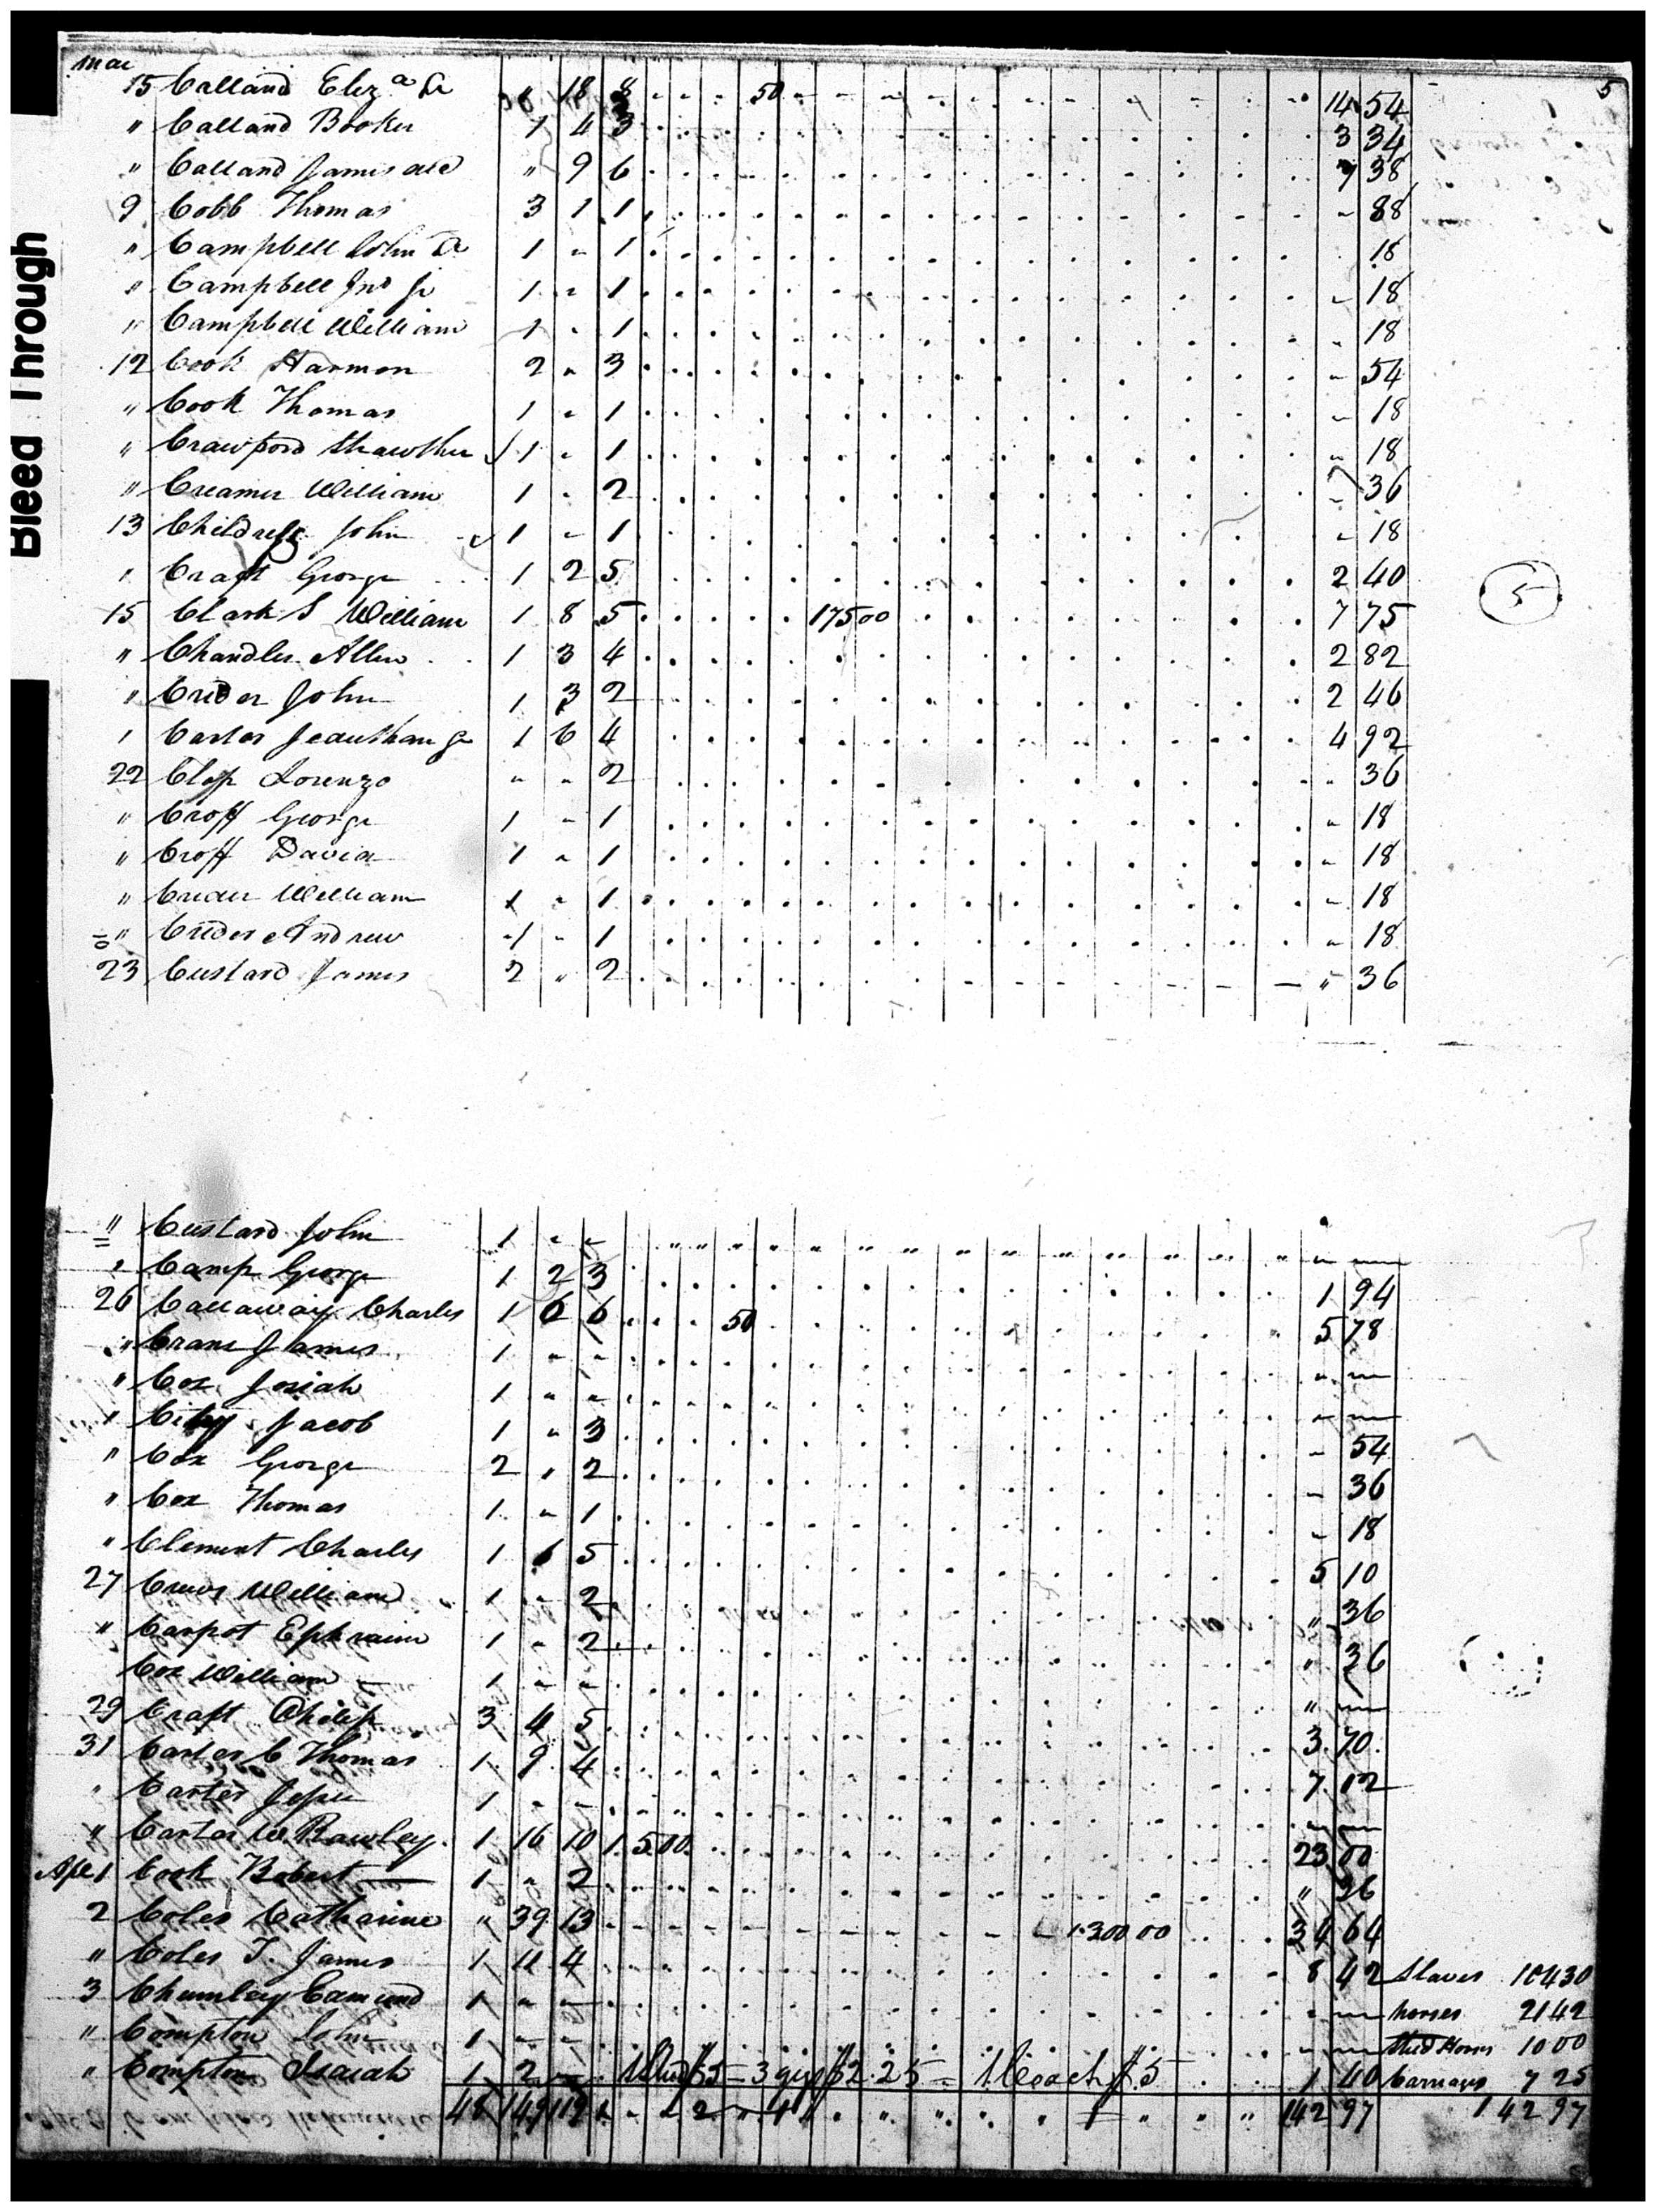 mar 5
15 Calland Eliz a Sr 1 18 8 - - - 50 - - - 14 54
" Calland Booker 1 4 3 3 34
" Calland James decd " 9 6 7 38
9 Cobb Thomas 3 1 1 - 88
" Campbell John Sr 1 - 1 18
" Campbell Jno Jr 1 - 1 - 18
" Campbell William 1 - 1 - 18
12 Cook Harmon 2 - 3 - 54
" Cook Thomas 1 - 1 - 18
" Crawford 1 - 1 - 18
" Creamer William 1 - 2 - 36
13 Childress John 1 - 1 - 18
" Craft George 1 2 5 2 40
15 Clark S William 1 8 5 175 00 7 75
5
" Chandler Allen 1 3 4 2 82
" Crider John 1 3 2 2 46
" Carter Jeduthan Jr 1 6 4 4 92
22 Clop Lorenzo " " 2 - 36
" Croff George 1 - 1 - 18
" Croff David 1 - 1 - 18
" Crider William 1 - 1 - 18
" Crider Andrew 1 - 1 - 18
23 Custard James 2 " 2 " 36
Bleed Through
" Custard John 1 - -
" Camp George 1 2 3 1 94
26 Callaway Charles 1 6 6 50 5 78
" Crane James 1 - -
" Cox Josiah 1 - -
" Jacob 1 " 3 - 54
" Cox George 2 " 2 - 36
" Cox Thomas 1 - 1 - 18
" Clement Charles 1 6 5 5 10
27 Crews William 1 - 2 " 36
" Carpot Ephraim 1 - 2 " 36
Cox William 1 - - "
29 Craft Philip 3 4 5 3 70
31 Carter C Thomas 1 9 4 7 02
" Carter Jesse 1 - -
" Carter W Rawley 1 16 10 1 5 00 23 00
Apl 1 Cook Robert 1 " 2 " 36
2 Coles Catharine " 39 13 1 300 00 34 64
" Coles T. James 1 11 4 8 42 Slaves 104 30
3 Chumley Edmund 1 - - horses 21 42
" Compton John 1 - - Stud Horses 10 00
" Compton Isaiah 1 2 - 1 Stud $5 - 3 gigs $2.25 - 1 Coach $5 1 40 Carriages 7 25
48 149 119 1 - - 2 " 1 1 1 142 97 142 97